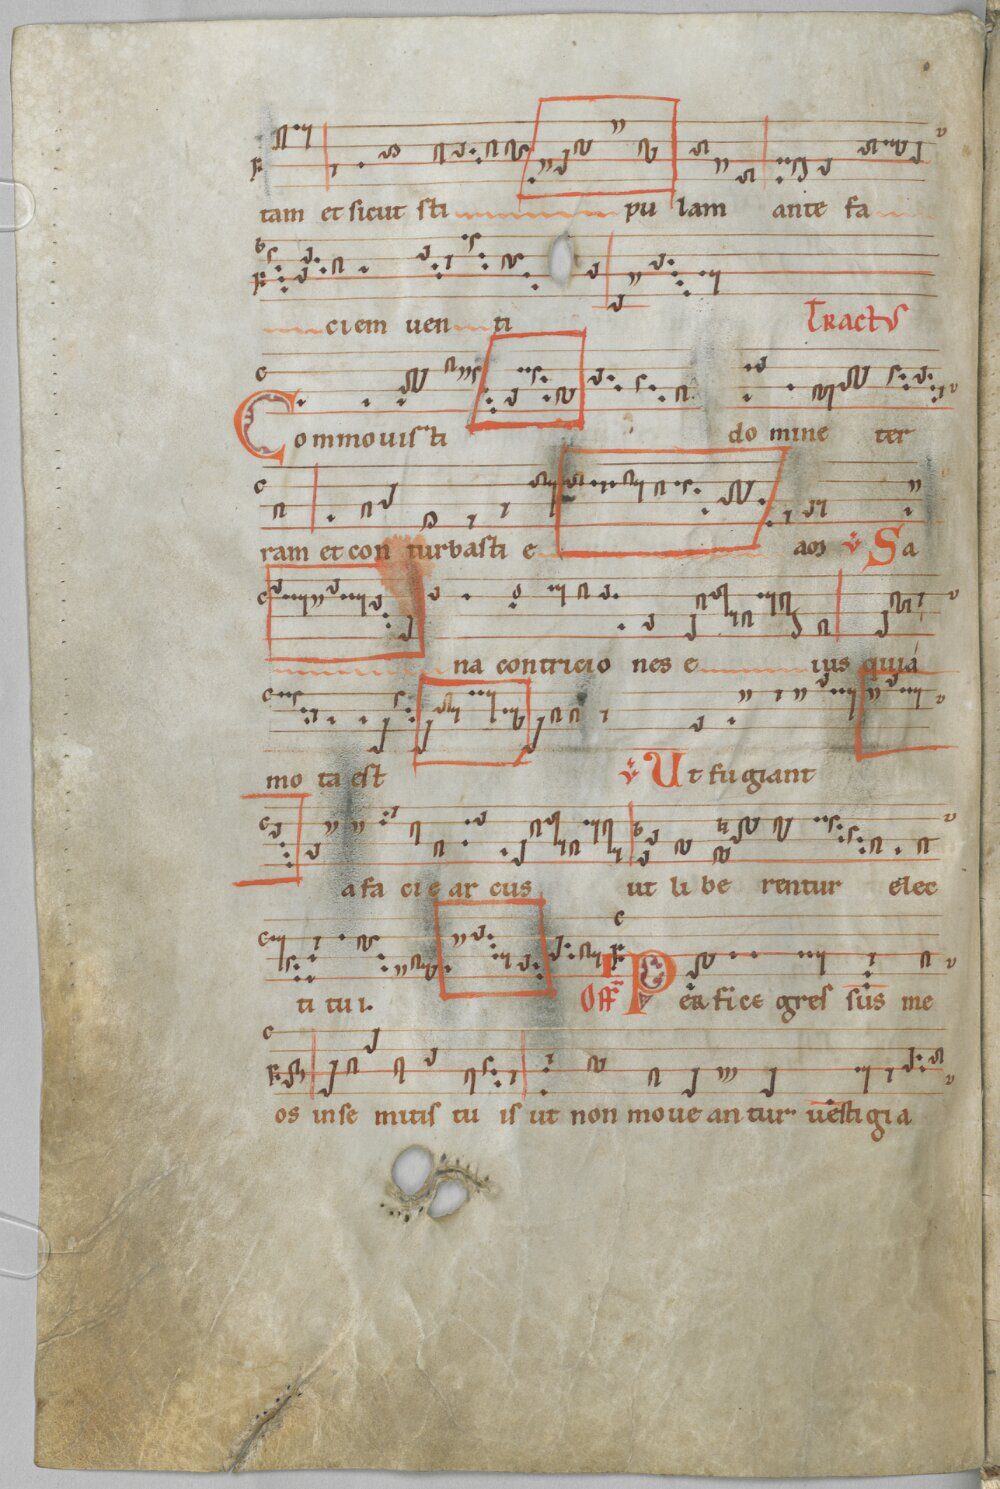 tam et sicut sti pu lam ante fa
ciem uen ti Tractus
Commouisti domine ter
ram et con turbasti e am ℣ Sa
na contricio nes e ius quia
mo ta est ℣ Ut fugiant
a fa cie ar cus ut li be rentur elec
ti tui. Off Per fice gres sus me
os in se mitis tu is ut non moue an tur uestigia